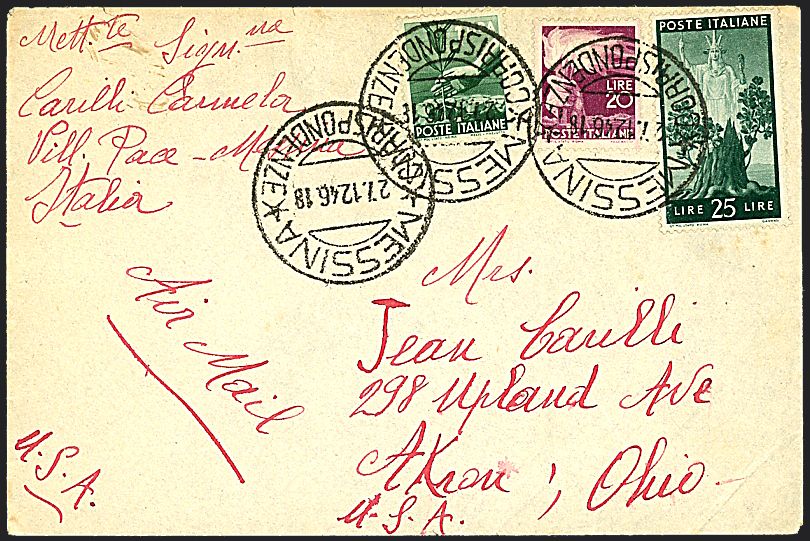 Mett.te Sign.na
Carilli Carmela
Vill. Pace - Messina
Italia
POSTE ITALIANE
LIRE
20
POSTE ITALIANE
POSTE ITALIANE
LIRE 25 LIRE
MESSINA CORRISPONDENZE
27.12.46.18
MESSINA CORRISPONDENZE
27.12.46.18
MESSINA CORRISPONDENZE
27.12.46.18
Air Mail
U.S.A.
Mrs.
Jean Carilli
298 Upland Ave
Akron, Ohio
U.S.A.